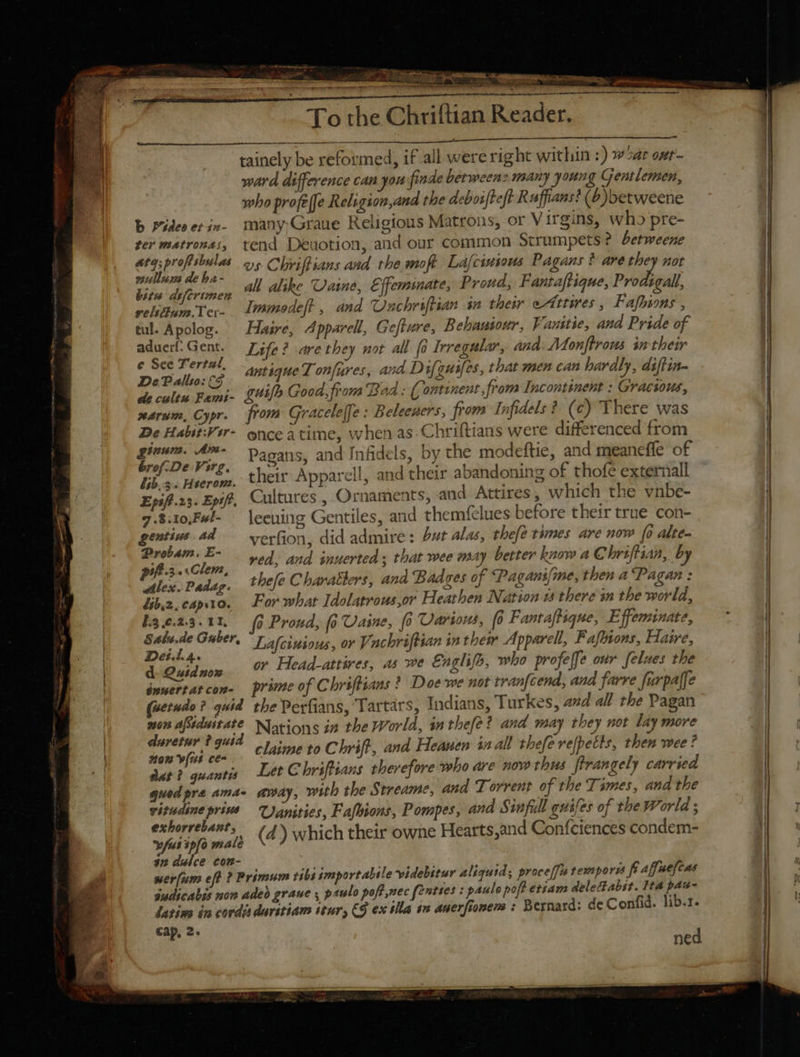 To the Chriſtian Reader.
tainely be reformed, if all were right within :) what out-
ward difference can you finde betweene many young Gentlemen,
who profeſſe Religion, and the deboiſteſt Ruffians? (b) betweene
many Graue Religious Matrons, or Virgins, who pre-
tend Deuotion, and our common Strumpets? betweene
vs Chriſtians and the moſt Laſciuious Pagans? are they not
all alike Vaine, Effeminate, Proud, Fantaſtique, Prodigall,
Immodeſt, and Vnchriſtian in their Attires, Faſhions,
Haire, Apparell, Geſture, Behauiour, Vanitie, and Pride of
Life? are they not all ſo Irregular, and Monſtrous in their
antique Tonſures, and Diſguiſes, that men can hardly, diſtin-
guiſh Good, from Bad: Continent, from Incontinent: Gracious,
from Graceleſſe: Beleeuers, from Infidels? (c) There was
once a time, when as Chriſtians were differenced from
Pagans, and Infidels, by the modeſtie, and meaneſſe of
their Apparell, and their abandoning of thoſe externall
Cultures, Ornaments, and Attires, which the vnbe-
leeuing Gentiles, and themſelues before their true con-
verſion, did admire: but alas, theſe times are now ſo alte-
red, and inuerted; that wee may better know a Chriſtian, by
theſe Characters, and Badges of Paganiſme, then a Pagan:
For what Idolatrous, or Heathen Nation is there in the world,
ſo Proud, ſo Vaine, ſo Various, ſo Fantaſtique, Effeminate,
Laſciuious, or Vnchriſtian in their Apparell, Faſhions, Haire,
or Head-attires, as we Engliſh, who profeſſe our ſelues the
prime of Chriſtians? Doe we not tranſcend, and farre ſurpaſſe
the Perſians, Tartars, Indians, Turkes, and all the Pagan
Nations in the World, in theſe? and may they not lay more
claime to Chriſt, and Heauen in all theſe reſpects, then wee?
Let Chriſtians therefore who are now thus ſtrangely carried
away, with the Streame, and Torrent of the Times, and the
Vanities, Faſhions, Pompes, and Sinfull guiſes of the World;
(d) which their owne Hearts, and Conſciences condem-
ned
b Video et in-
ter matronas,
atq; proſtibulas
nullum de ha-
bitu diſcrimen
relictum. Ter-
tul. Apolog.
aduerſ. Gent.
c See Tertul.
De Pallio: &
de cultu Fami-
narum, Cypr.
De Habit: Vir-
ginum. Am-
broſ. De Virg.
lib. 3. Hierom.
Epiſt. 23. Epiſt.
7. 8. 10, Ful-
gentius ad
Probam. E-
piſt. 3. Clem.
Alex. Padag.
lib. 2. cap. 10.
l. 3. c. 2. 3. 11.
Salu. de Guber.
Dei. l. 4.
d Quid non
inuertat con-
ſuetudo? quid
non aſsiduitate
duretur? quid
non vſui ce-
dat? quantis
quod præ ama-
ritudine prius
exhorrebant,
vſu ipſo malè
in dulce con-
uerſum eſt? Primum tibi importabile videbitur aliquid; proceſſu temporis ſi aſſueſcas
iudicabis non adeò graue; paulo poſt, nec ſenties: paulo poſt etiam delectabit. Ita pau-
latim in cordis duritiam itur, & ex illa in auerſionem: Bernard: de Confid. lib. 1.
cap. 2.